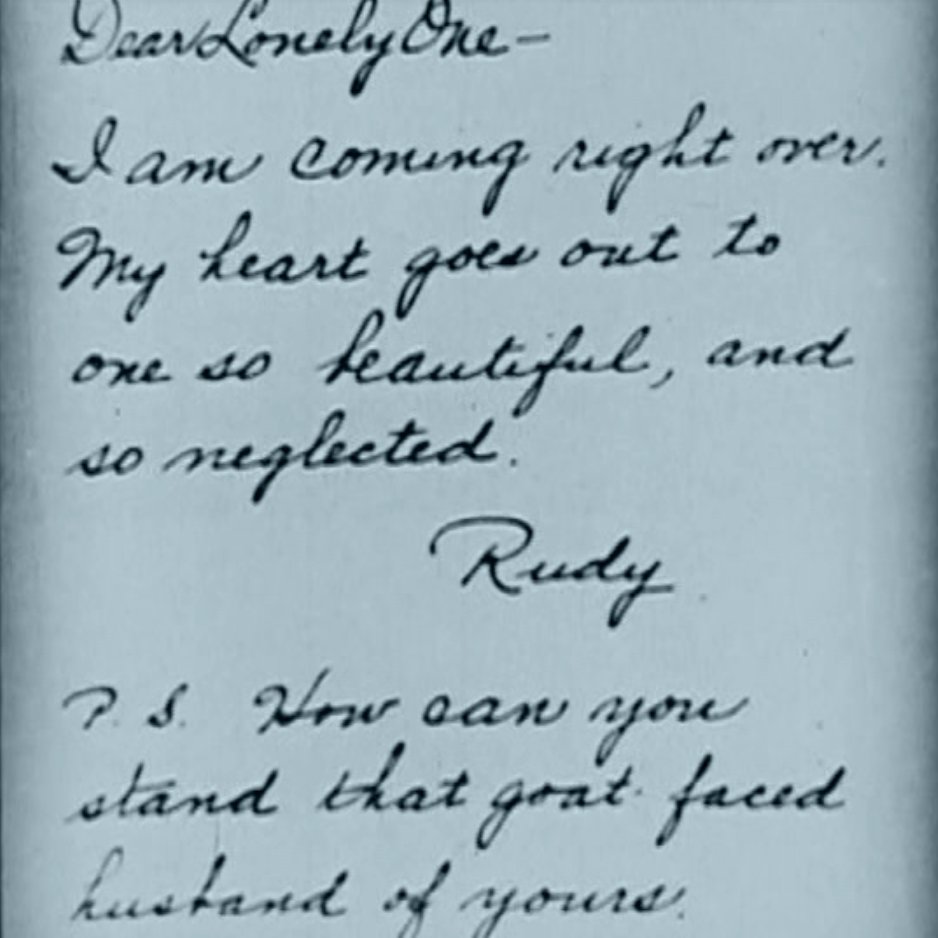 Dear Lonely One –
I am coming right over.
My heart goes out to
one so beautiful, and
so neglected.
Rudy
P. S. How can you
stand that goat faced
husband of yours.